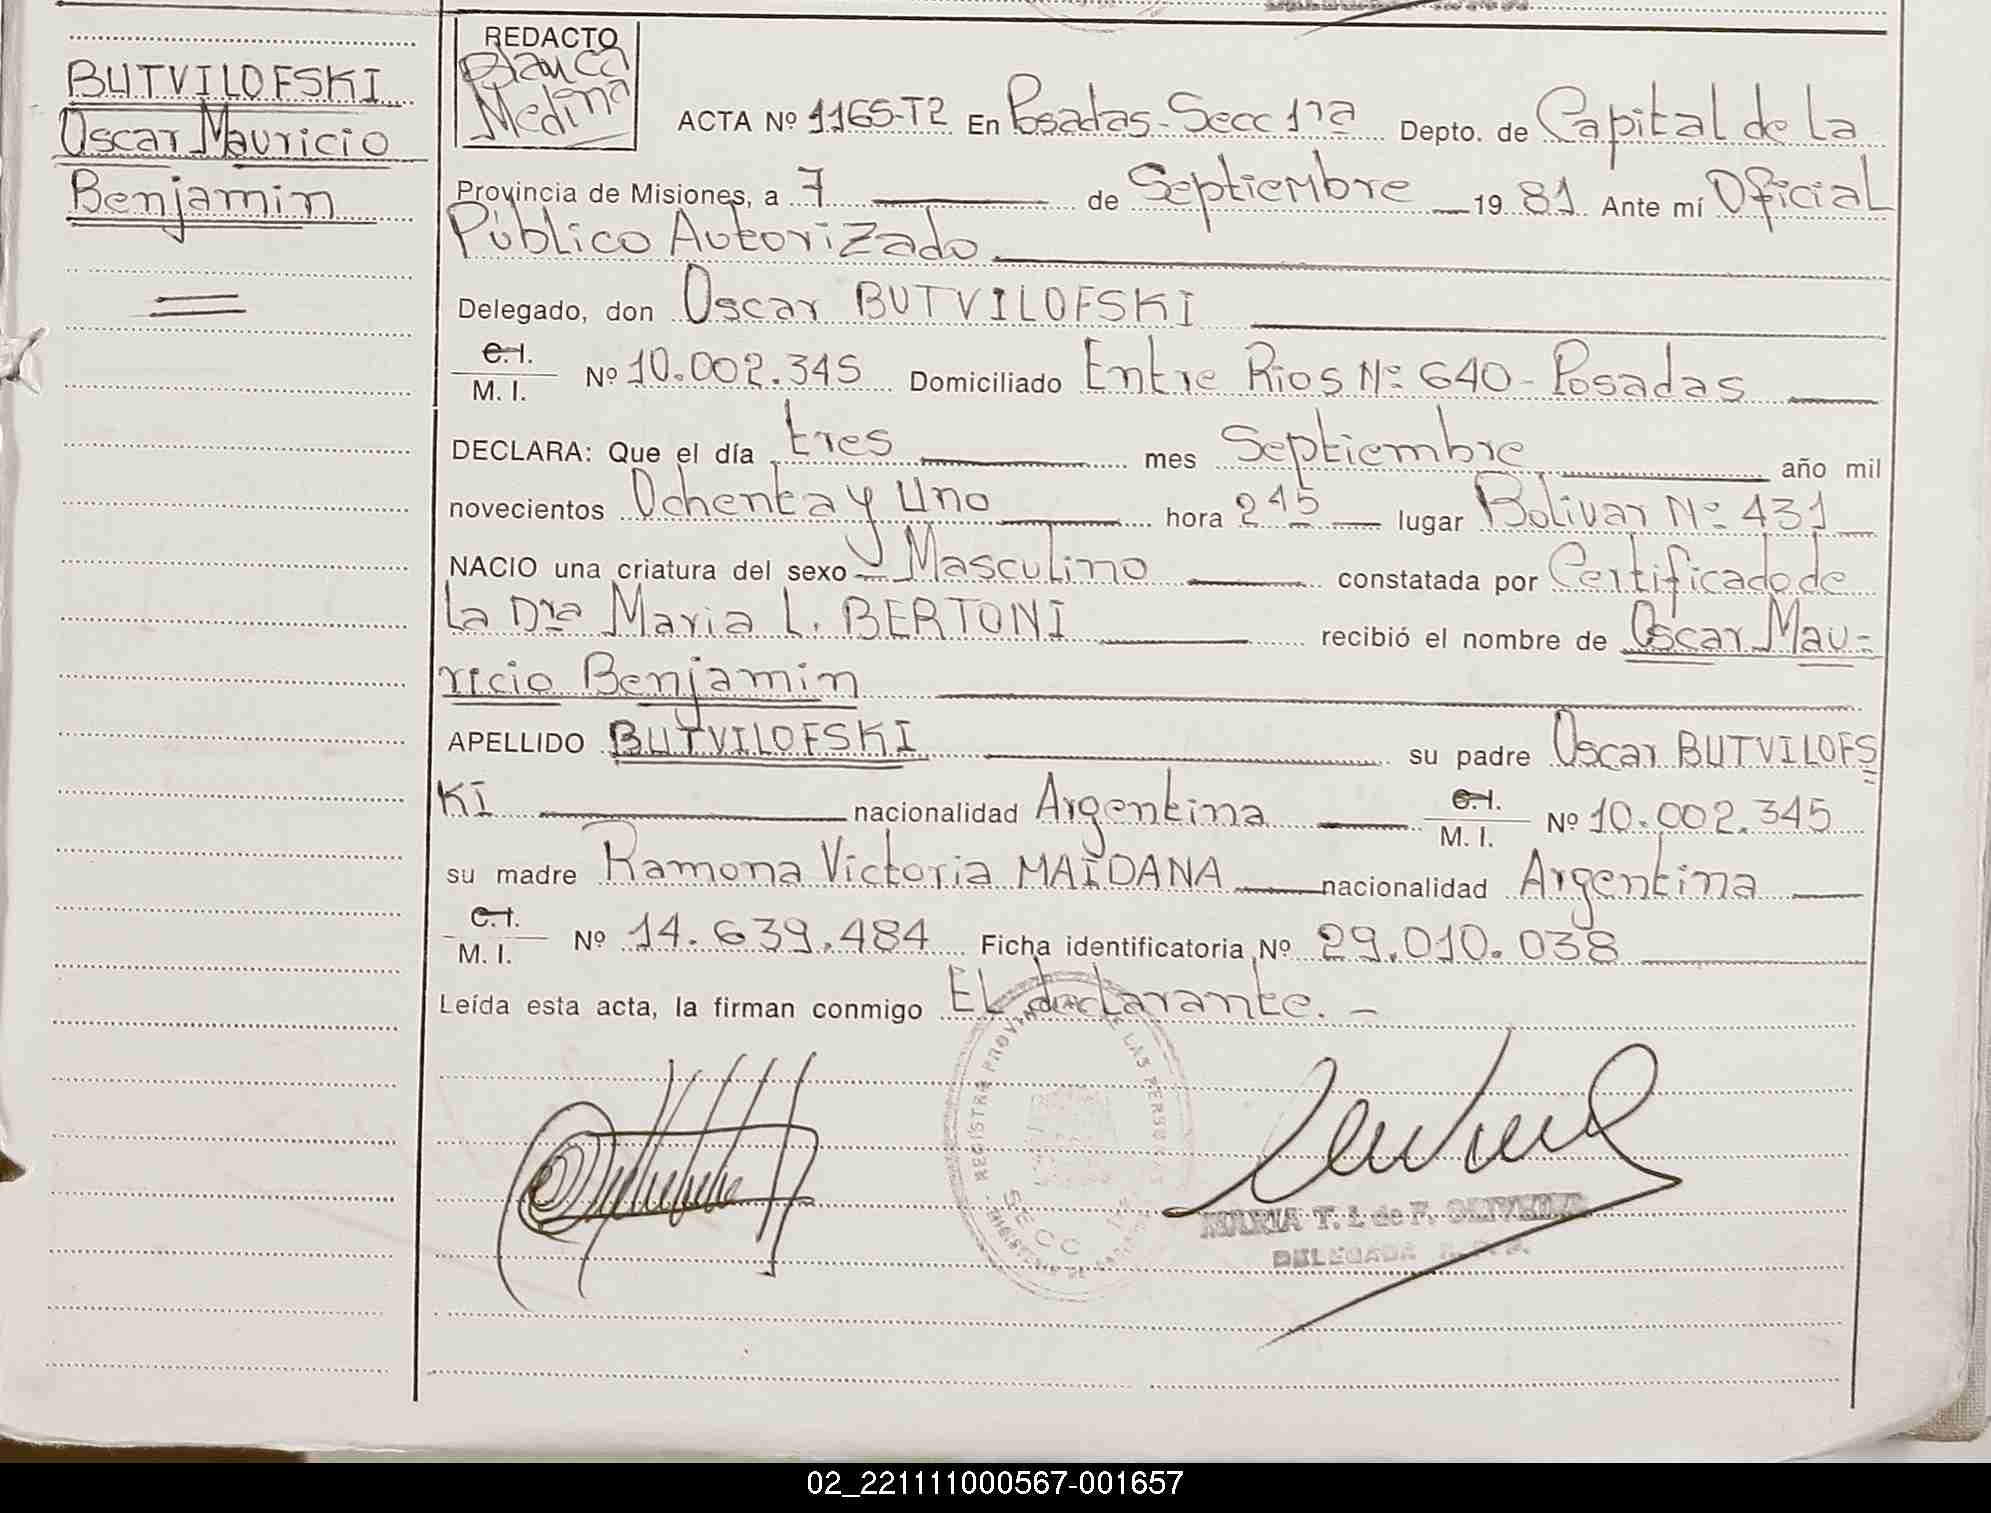 BUTVILOFSKI
Oscar Mauricio
Benjamin
REDACTO
Blanca
Medina
ACTA Nº 1165-T2 En Posadas-Secc 1ra Depto. de Capital de La
Provincia de Misiones, a 7 de Septiembre 1981 Ante mí Oficial
Público Autorizado
Delegado, don Oscar BUTVILOFSKI
C.I.
M. I. Nº 10.002.345 Domiciliado Entre Rios Nº 640-Posadas
DECLARA: Que el día tres mes Septiembre año mil
novecientos Ochenta y Uno hora 2 45 lugar Bolivar Nº 431
NACIO una criatura del sexo Masculino constatada por Certificado de
La Dra Maria L. BERTONI recibió el nombre de Oscar Mau-
ricio Benjamin
APELLIDO BUTVILOFSKI su padre Oscar BUTVILOFS
KI nacionalidad Argentina C.I. M. I. Nº 10.002.345
su madre Ramona Victoria MAIDANA nacionalidad Argentina
C.I.
M. I. Nº 14.639.484 Ficha identificatoria Nº 29.010.038
Leída esta acta, la firman conmigo El declarante.-
REGISTRO PROV DE LAS PERSONAS
SECC 1ra
MARIA T. I. de F. OLIVEIRA
DELEGADA R. P. P.
02_221111000567-001657